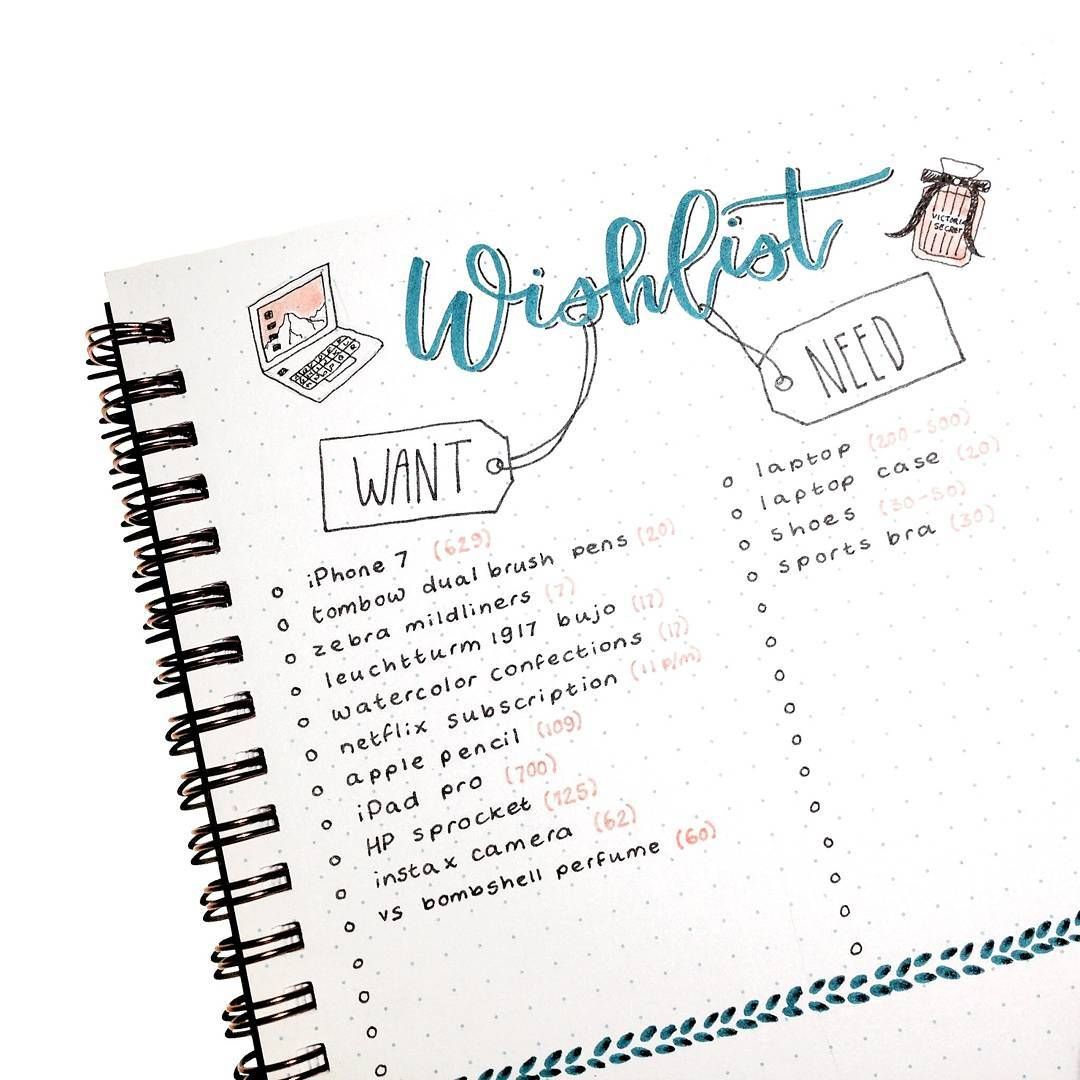 Wishlist
VICTORIA
SECRET
WANT
iPhone 7 (629)
tombow dual brush pens (20)
zebra mildliners (7)
leuchtturm 1917 bujo (17)
watercolor confections (17)
netflix subscription (11 p/m)
apple pencil (109)
iPad pro (700)
HP sprocket (125)
instax camera (62)
vs bombshell perfume (60)
NEED
laptop (200-500)
laptop case (20)
shoes (30-50)
sports bra (30)